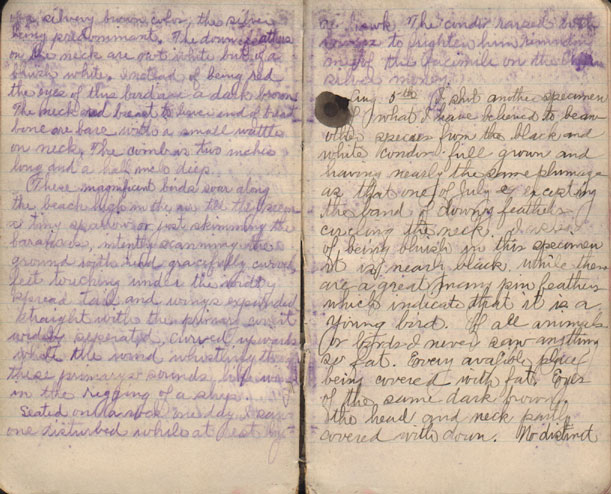 of a silvery brown color, the silver
being predominant. The downy feathers
on the neck are not white but of a
bluish white. Instead of being red
the eyes of this bird are a dark brown.
The neck and breast to lower end of breast
bone are bare with a small wattle
on neck. The comb is two inches
long and a half inch deep.
These magnificent birds soar along
the beach high in the air till they seem
a tiny sparrow or just skimming the
barancas, intently scanning the
ground with head gracefully curved,
feet touching under the widely
spread tail and wings expanded
straight with the primaries
widely separated, curved upwards
while the wind whistling through
these primarys sounds like wind
in the rigging of a ship.
Seated on a rock one day I saw
one disturbed while at rest by
a hawk. The condor raised both
wings to frighten him reminding
me of the facsimile on the
silver money.
Aug. 5th I shot another specimen
of what I have believed to be an
other species from the black and
white condor full grown and
having nearly the same plumage
as that one of July 2 excepting
the band of downy feathers
circling the neck. Instead
of being bluish in this specimen
it is nearly black while there
are a great many pin feathers
which indicate that it is a
young bird. Of all animals
or birds I never saw anything
so fat. Every available place
being covered with fat. Eyes
of the same dark brown.
The head and neck partly
covered with down. No distinct